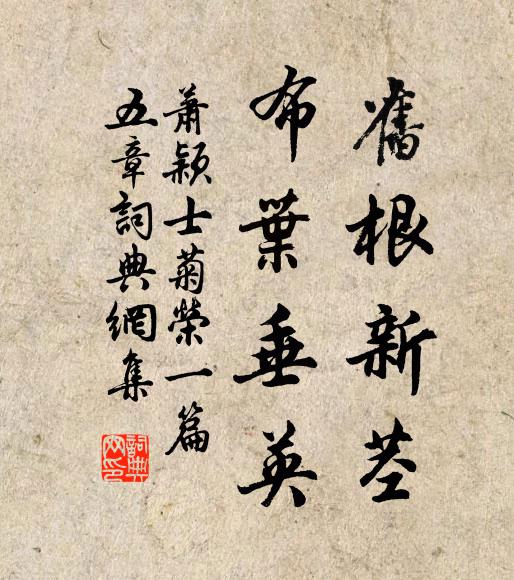 舊根新莖
布葉垂英
蕭穎士菊榮一篇
五章詞典網集
詞典網印